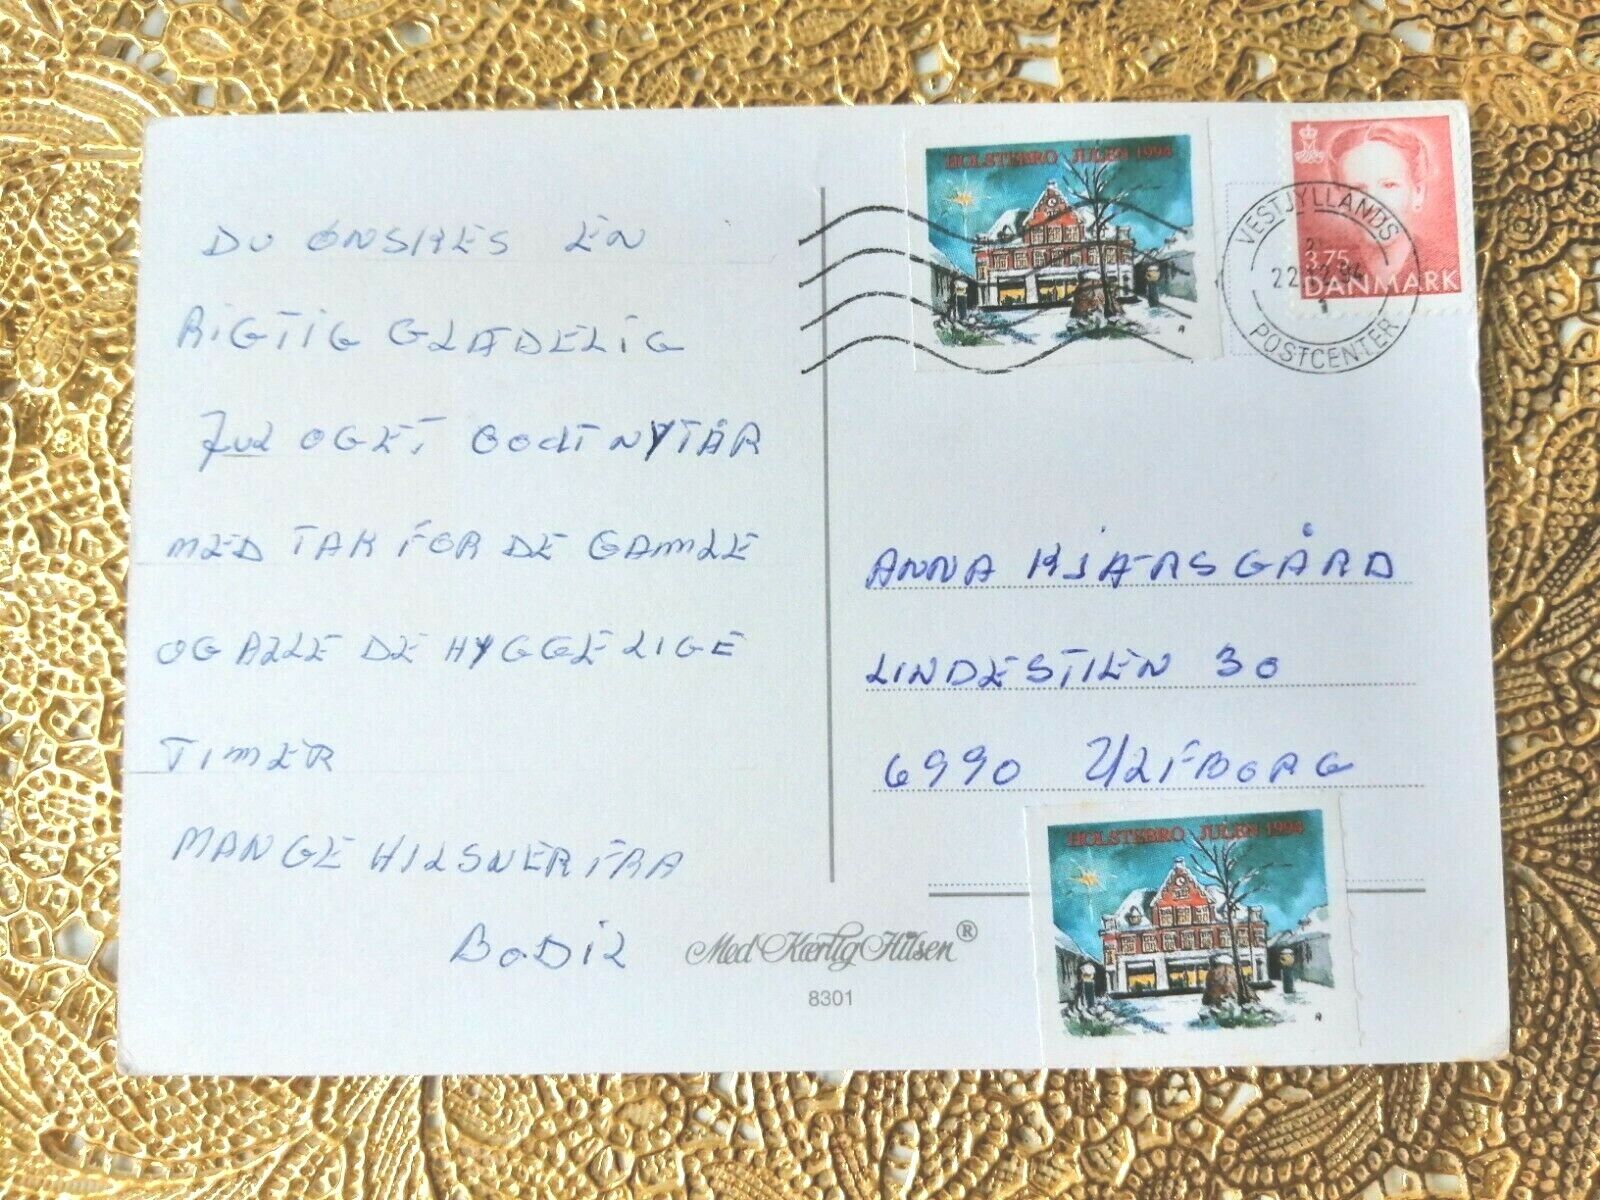 DU ØNSKES EN
RIGTIG GLÆDELIG
JUL OGET GODT NYTÅR
MED TAK FOR DE GAMLE
OG ALLE DE HYGGELIGE
TIMER
MANGE HILSNER FRA
BODIL
Med Kærlig Hilsen®
8301
HOLSTEBRO JULEN 1994
3.75
DANMARK
VESTJYLLANDS
22.12.94
POSTCENTER
ANNA KJÆRSGÅRD
LINDESTIEN 30
6990 ULFBORG
HOLSTEBRO JULEN 1994